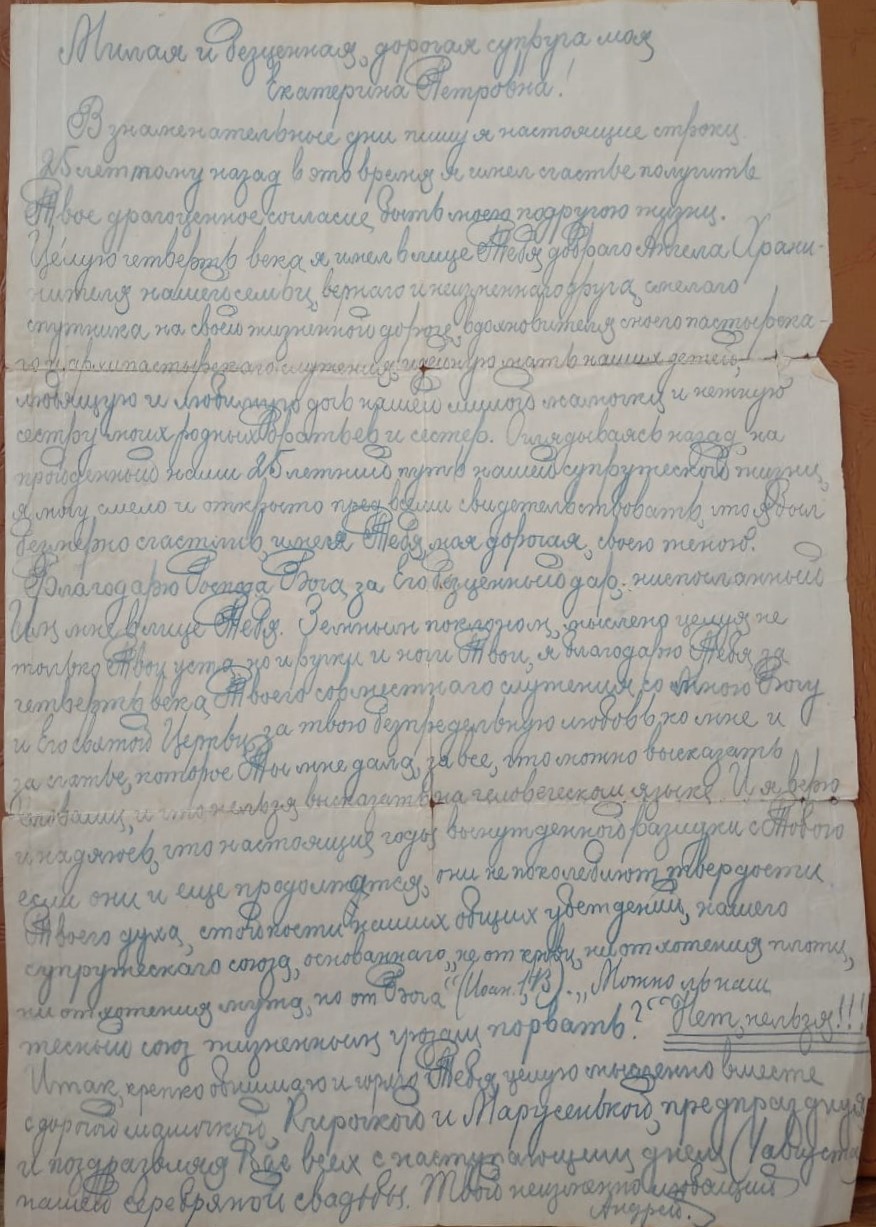 Милая и безценная, дорогая супруга моя
Екатерина Петровна!
В знаменательные дни пишу я настоящие строки.
25 лет тому назад в это время я имел счастье получить
Твое драгоценное согласие быть моею подругою жизни.
Целую четверть века я имел в лице Тебя добраго Ангела Храни-
нителя нашей семьи, вернаго и неизменнаго друга, смелаго
спутника на своей жизненной дороге, вдохновителя своего пастырска-
го и архипастырскаго служения, идейную мать наших детей,
любящую и любимую дочь нашей милой мамочки и нежную
сестру моих родных братьев и сестер. Оглядываясь назад, на
пройденный нами 25 летний путь нашей супружеской жизни,
я могу смело и открыто пред всеми свидетельствовать, что я был
безмерно счастлив, имея Тебя, моя дорогая, своею женою.
Благодарю Господа Бога за Его безценный дар, ниспосланный
Им мне в лице Тебя. Земным поклоном, мыслено целуя не
только Твои уста, но и ручки и ноги Твои, я благодарю Тебя за
четверть века Твоего совместнаго служения со мною Богу
и Его святой Церкви, за твою безпредельную любовь ко мне и
за счастье, которое Ты мне дала, за все, что можно высказать
словами, и что нельзя высказать на человеческом языке. И я верю
и надяюсь, что настоящие годы вынужденной разлуки с Тобою
если они и еще продолжатся, они не поколеблют твердости
Твоего духа, стойкости наших общих убеждений, нашего
супружескаго союза, основаннаго „не от крви, ни от хотения плоти,
ни от хотения мужа, но от Бога“ (Иоан. 1,13). „Можно ль наш
тесный союз жизненным грозам порвать?“ Нет, нельзя!!!
Итак, крепко обнимаю и горячо Тебя целую мысленно вместе
с дорогой мамочкой, Кирочкой и Марусенькой, предпразднуя
и поздравляя Вас всех с наступающим днем (1 августа
нашей серебряной свадьбы. Твой неизменно любящий
Андрей.